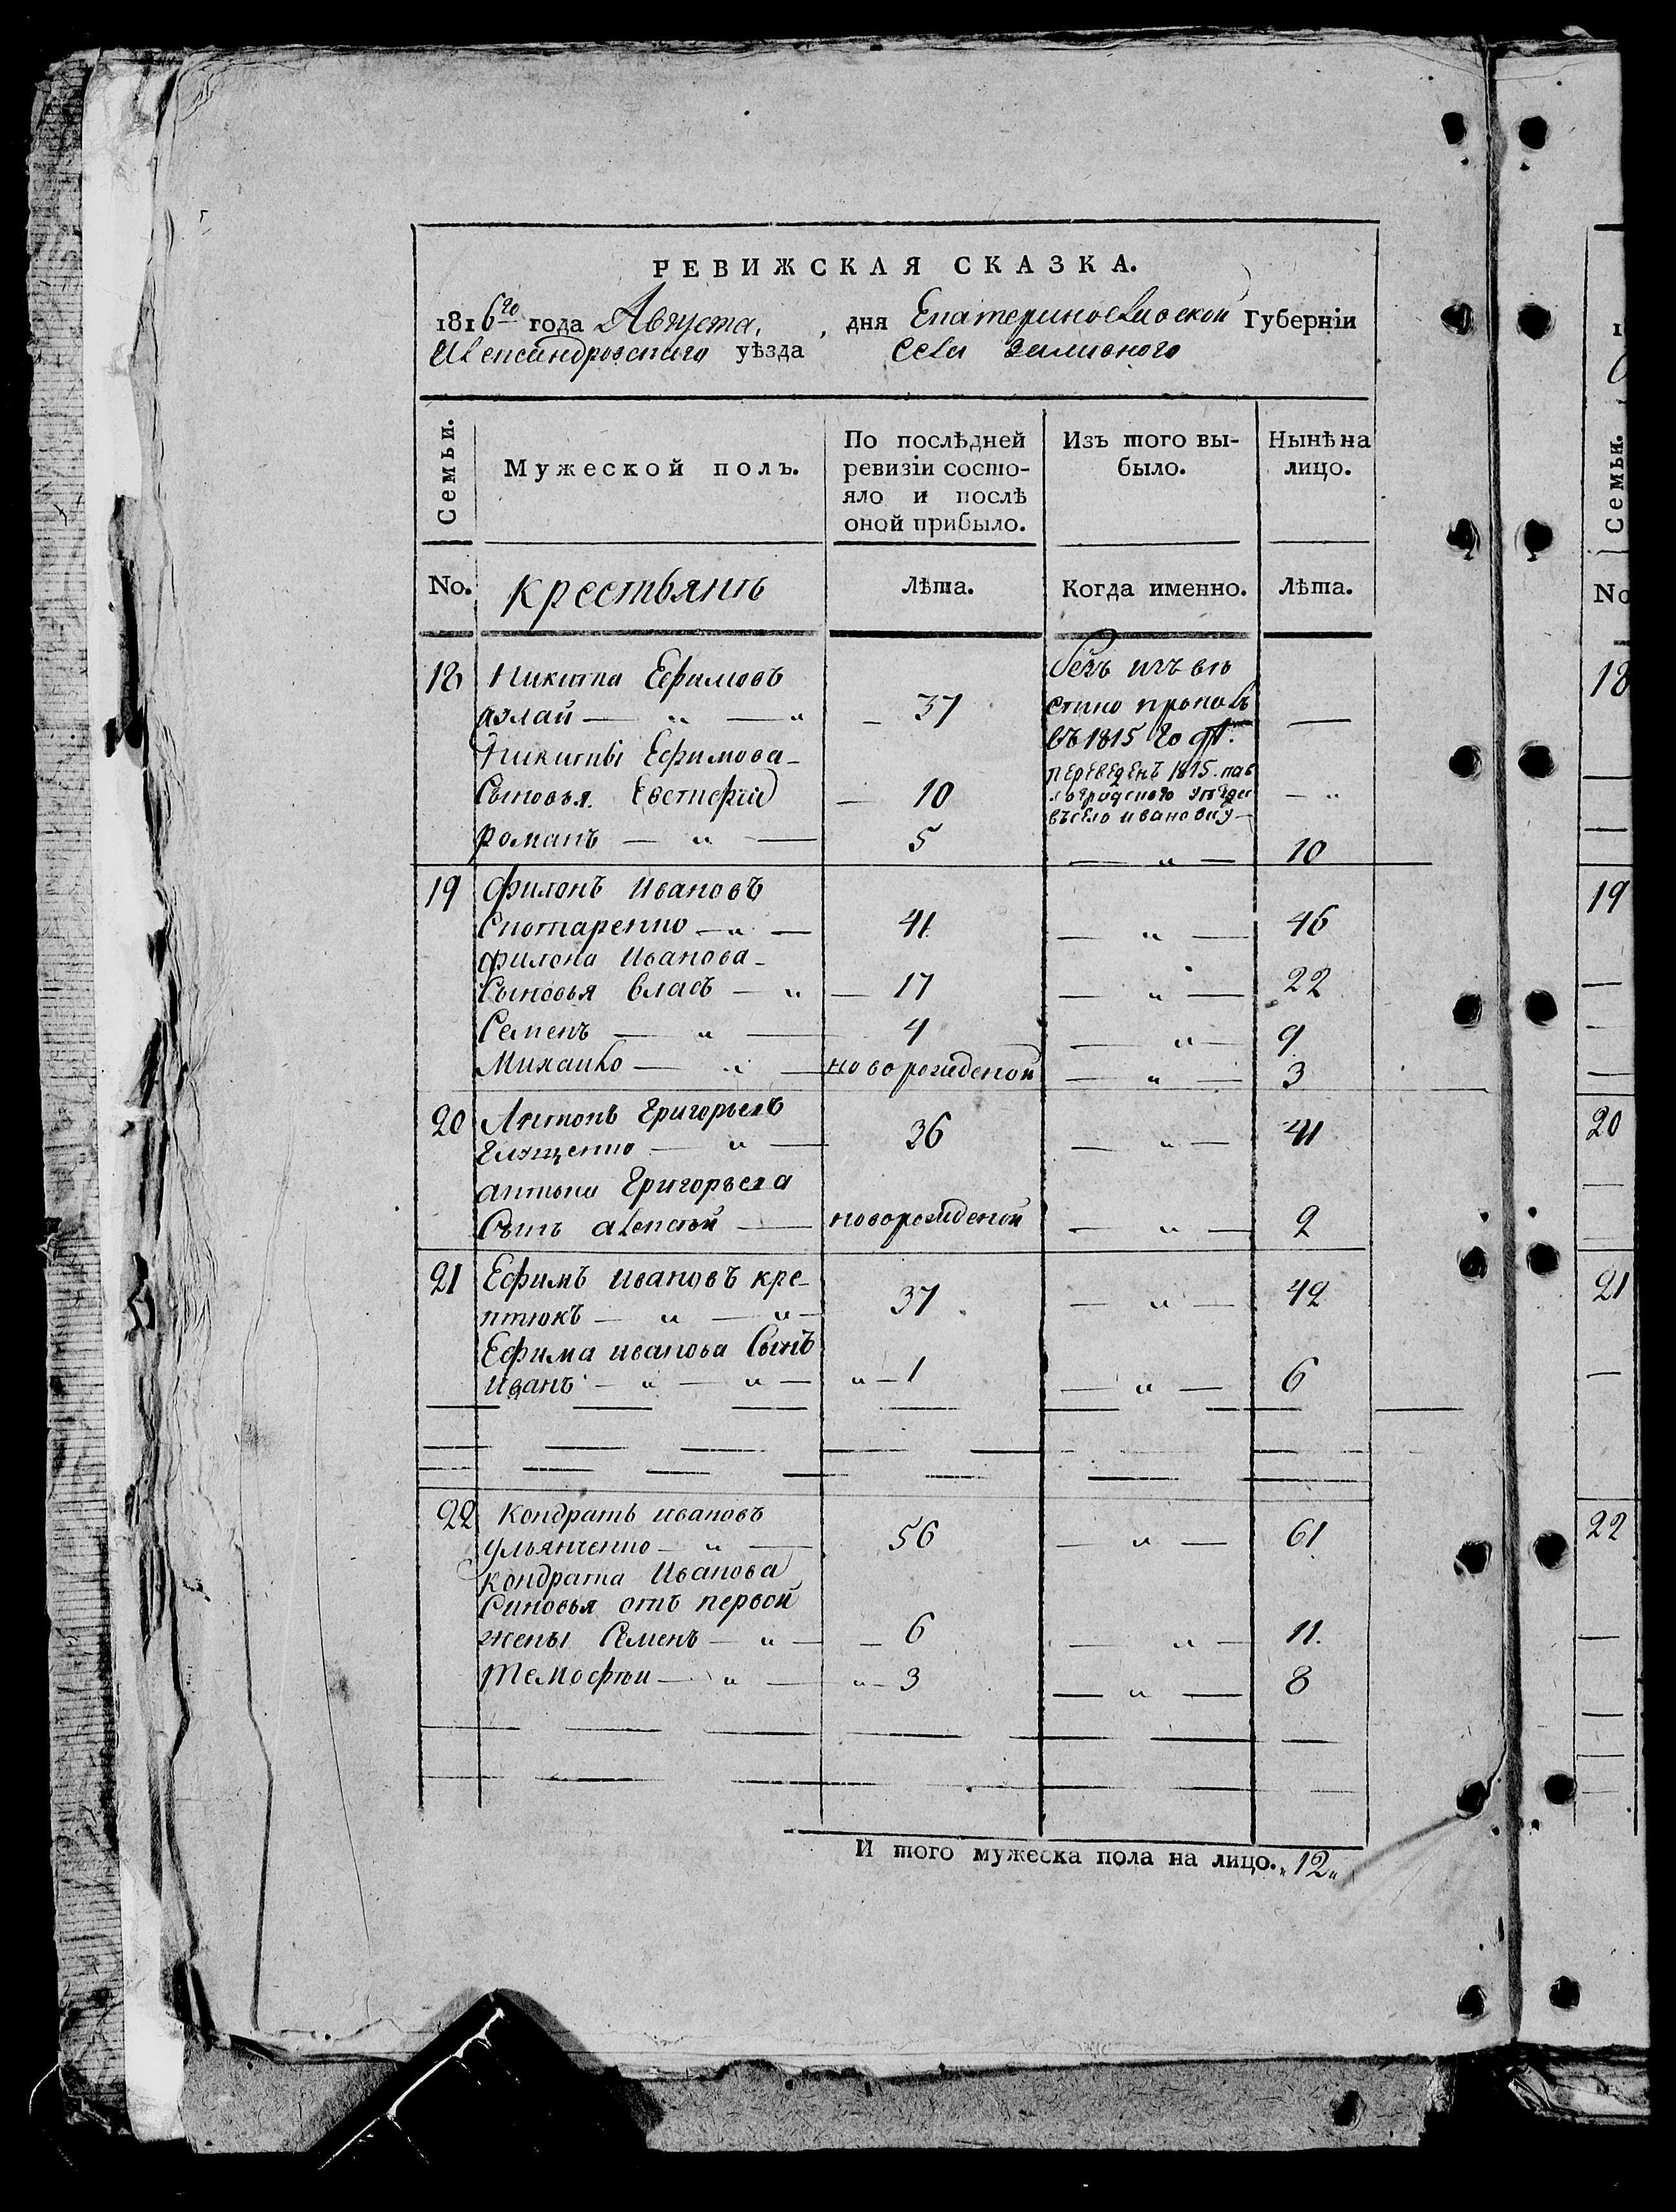 РЕВИЖСКАЯ СКАЗКА.
1816го года Августа, дня Екатеринославской Губерніи
Александровскаго уѣзда Села Заливного
Семьи.
Мужеской полъ.
По послѣдней ревизіи состо-
яло и послѣ
оной прибыло.
Изъ того вы-
было.
Нынѣ на
лицо.
No. крестьянъ Лѣта. Когда именно. Лѣта.
18 Никита Ефимовъ безъ извѣ
— 37 стно пропалъ —
въ 1815 году
Никиты Ефимова переведенъ 1815. пав
Сыновья Евстафій — 10 лоградского уѣзда — "
въ село ивановку
романъ — " — 5 — " — 10
19 филонъ Ивановъ
— " — 41 — " — 46
филона Иванова
Сыновья власъ — " — 17 — " — 22
Семенъ — " — 4 — " — 9
Михайло — " — новорожденой — " — 3
20 Антонъ Григорьевъ
Глущенко — " — 36 — " — 41
антона Григорьева
Сынъ алексѣй — новорожденой — " — 2
21 Ефимъ ивановъ кре-
птюкъ — " — " — 37 — " — 42
Ефима иванова Сынъ
иванъ — " — " — " — 1 — " — 6
22 кондратъ ивановъ
ульянченко — " — 56 — " — 61
кондрата Иванова
Синовья отъ первой
жены Семенъ — " — — 6 — " — 11.
темофѣи — " — " — 3 — " — 8
И того мужеска пола на лицо. "12"
1
Семьи.
No
18
19
20
21
22